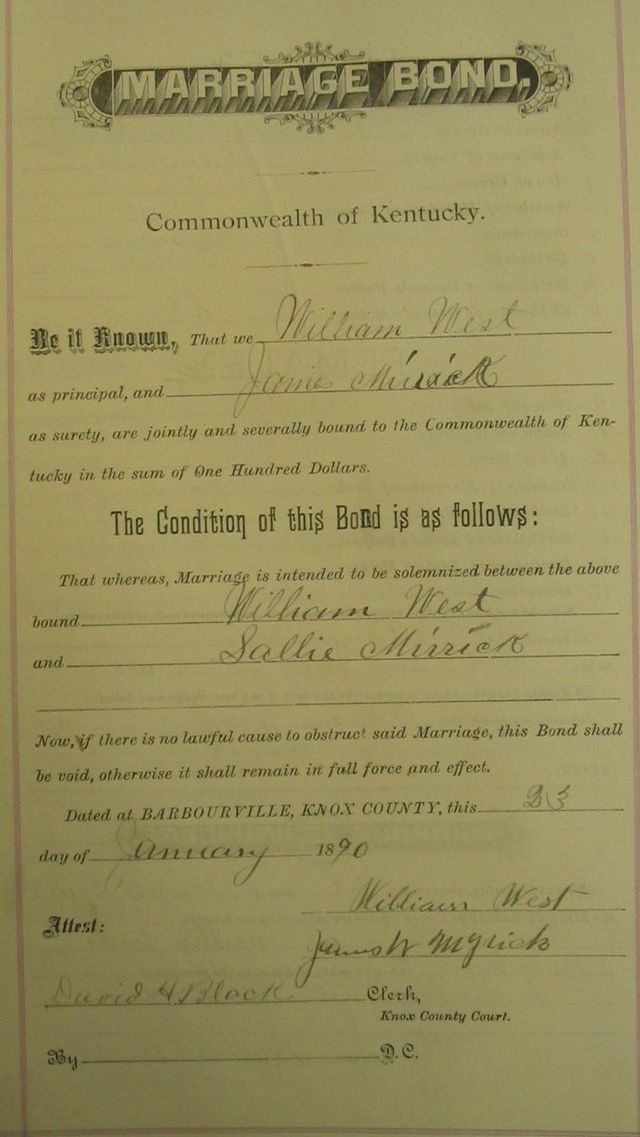 MARRIAGE BOND,
Commonwealth of Kentucky.
Be it Known, That we William West
as principal, and James Mirrick
as surety, are jointly and severally bound to the Commonwealth of Ken-
tucky in the sum of One Hundred Dollars.
The Condition of this Bond is as follows:
That whereas, Marriage is intended to be solemnized between the above
bound William West
and Sallie Mirrick
Now, if there is no lawful cause to obstruct said Marriage, this Bond shall
be void, otherwise it shall remain in full force and effect.
Dated at BARBOURVILLE, KNOX COUNTY, this 23
day of January 1890
William West
Attest:
James W Myrick
David H Black Clerk,
Knox County Court.
By D.C.